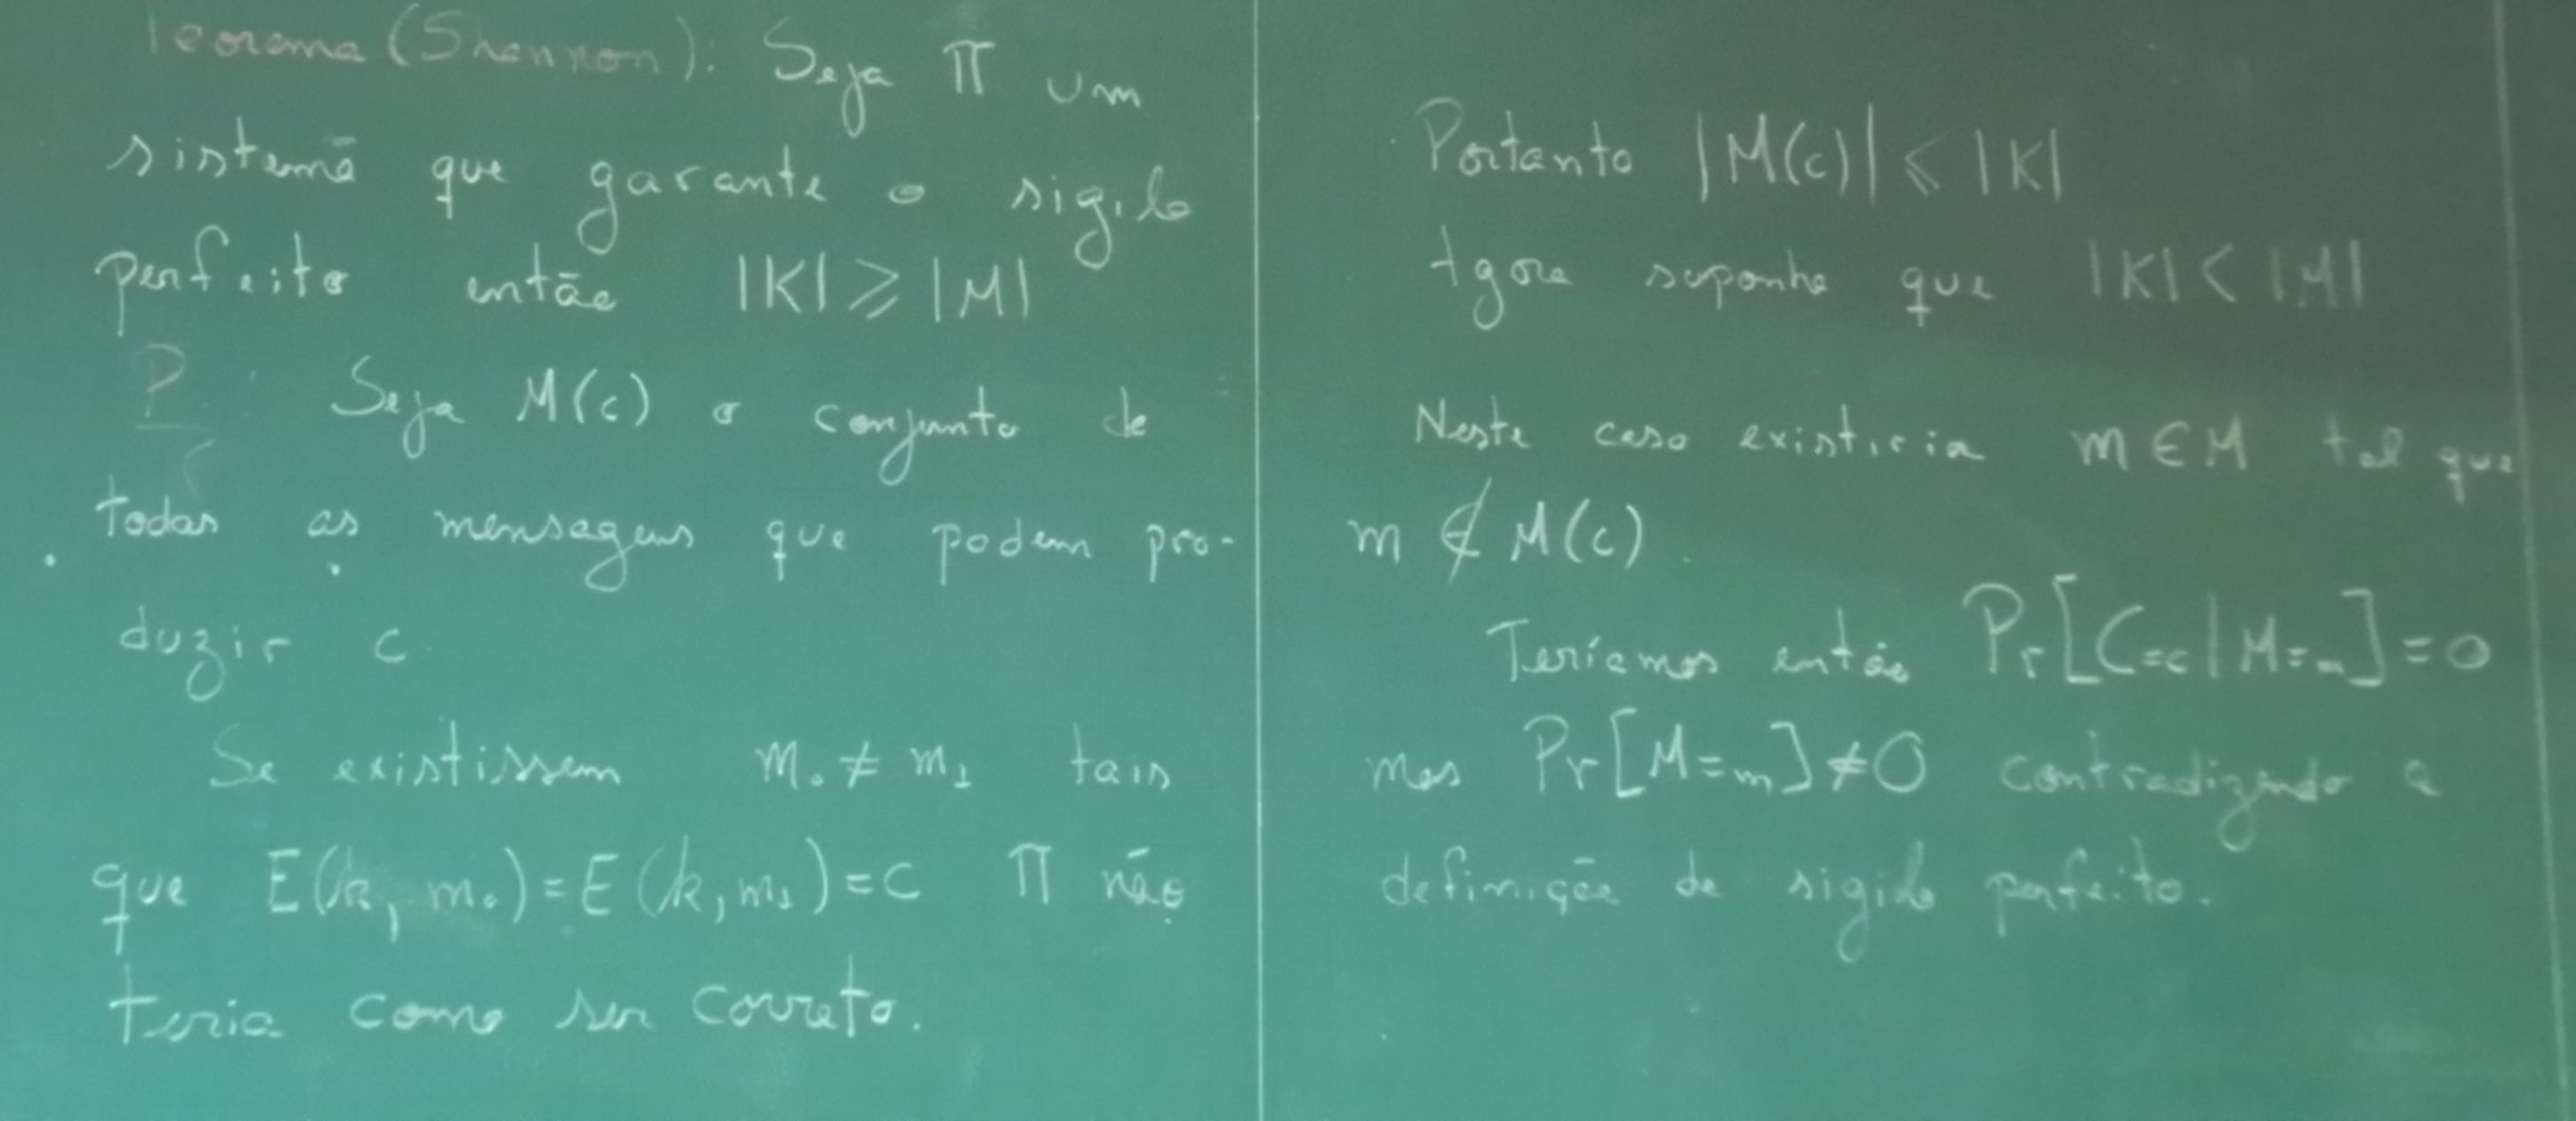 Teorema (Shannon): Seja Π um
sistema que garante o sigilo
perfeito então |K| ⩾ |M|
P.: Seja M(c) o conjunto de
todas as mensagens que podem pro-
duzir c.
Se existissem m₀ ≠ m₁ tais
que E(k, m₀) = E(k, m₁) = c Π não
teria como ser correto.
Portanto |M(c)| ⩽ |K|
Agora suponha que |K| < |M|
Neste caso existiria m ∈ M tal que
m ∉ M(c).
Teríamos então Pr[C=c|M=m] = 0
mas Pr[M=m] ≠ 0 contradizendo a
definição de sigilo perfeito.